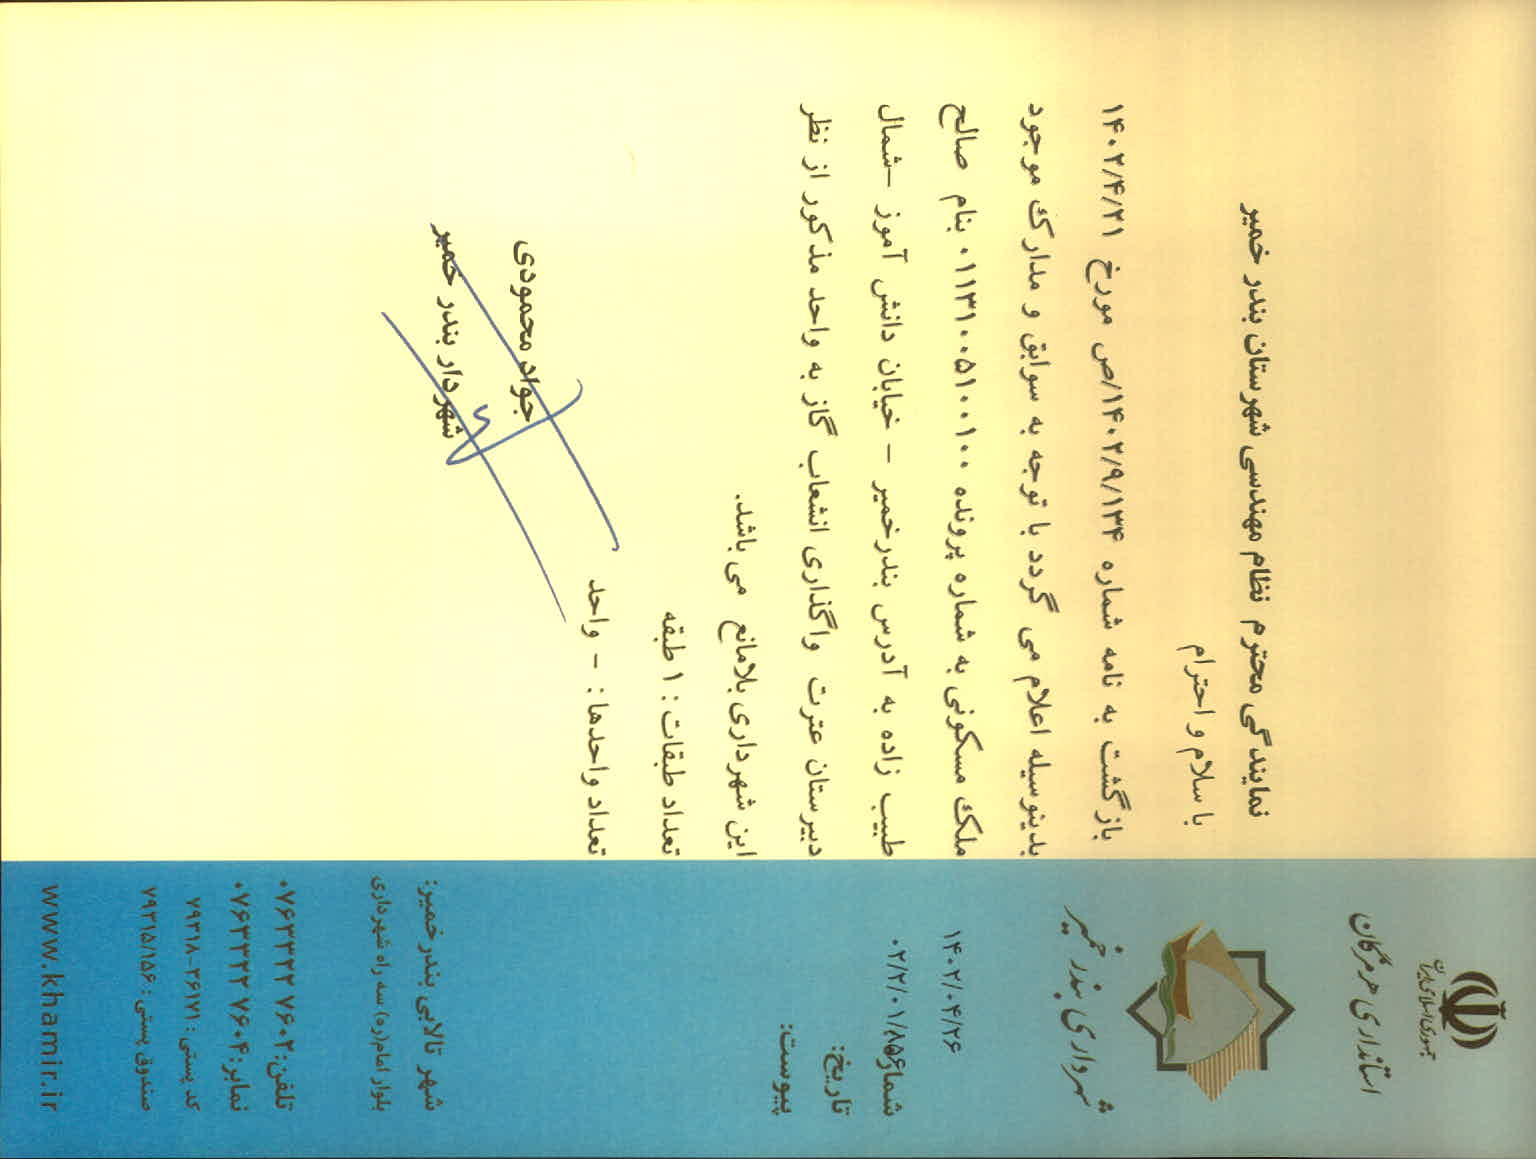 جمهوری اسلامی ایران
استانداری هرمزگان
شهرداری بندر خمیر
۱۴۰۲/۰۴/۲۶
شماره: ۰۲/۲/۰۱/۸۵۶
تاریخ:
پیوست:
شهر تالابی بندر خمیر:
بلوار امام(ره) سه راه شهرداری
تلفن: ۰۷۶۳۳۳۲ ۷۶۰۲
نمابر: ۰۷۶۳۳۲۲ ۷۶۰۴
کد پستی: ۲۶۱۷۱-۷۹۳۱۸
صندوق پستی: ۷۹۳۱۵/۱۵۶
www.khamir.ir
نمایندگی محترم نظام مهندسی شهرستان بندر خمیر
با سلام و احترام
بازگشت به نامه شماره ۱۴۰۲/۹/۱۳۴/ص مورخ ۱۴۰۲/۴/۲۱
بدینوسیله اعلام می گردد با توجه به سوابق و مدارک موجود
ملک مسکونی به شماره پرونده ۰۱۱۳۱۰۰۵۱۰۰۱۰۰ بنام صالح
طبیب زاده به آدرس بندرخمیر - خیابان دانش آموز -شمال
دبیرستان عترت واگذاری انشعاب گاز به واحد مذکور از نظر
این شهرداری بلامانع می باشد.
تعداد طبقات: ۱ طبقه
تعداد واحدها: - واحد
جواد محمودی
شهردار بندر خمیر